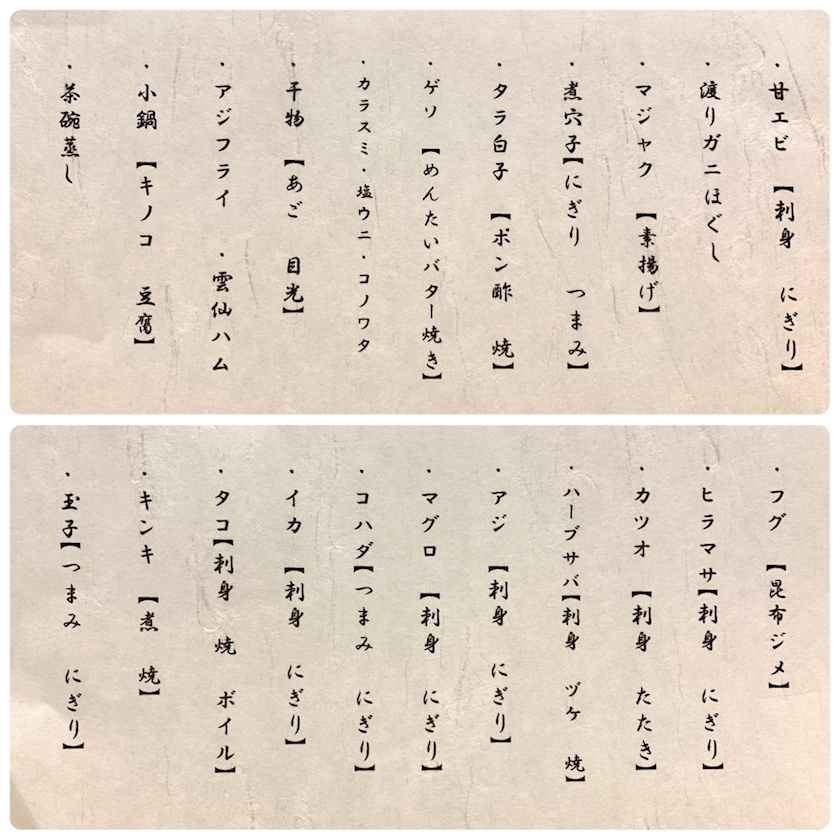 ・甘エビ 【刺身 にぎり】
・渡りガニほぐし
・マジャク 【素揚げ】
・煮穴子【にぎり つまみ】
・タラ白子 【ポン酢 焼】
・ゲソ 【めんたいバター焼き】
・カラスミ・塩ウニ・コノワタ
・干物 【あご 目光】
・アジフライ ・雲仙ハム
・小鍋 【キノコ 豆腐】
・茶碗蒸し
・フグ 【昆布ジメ】
・ヒラマサ【刺身 にぎり】
・カツオ 【刺身 たたき】
・ハーブサバ【刺身 ヅケ 焼】
・アジ 【刺身 にぎり】
・マグロ 【刺身 にぎり】
・コハダ【つまみ にぎり】
・イカ 【刺身 にぎり】
・タコ【刺身 焼 ボイル】
・キンキ 【煮 焼】
・玉子【つまみ にぎり】